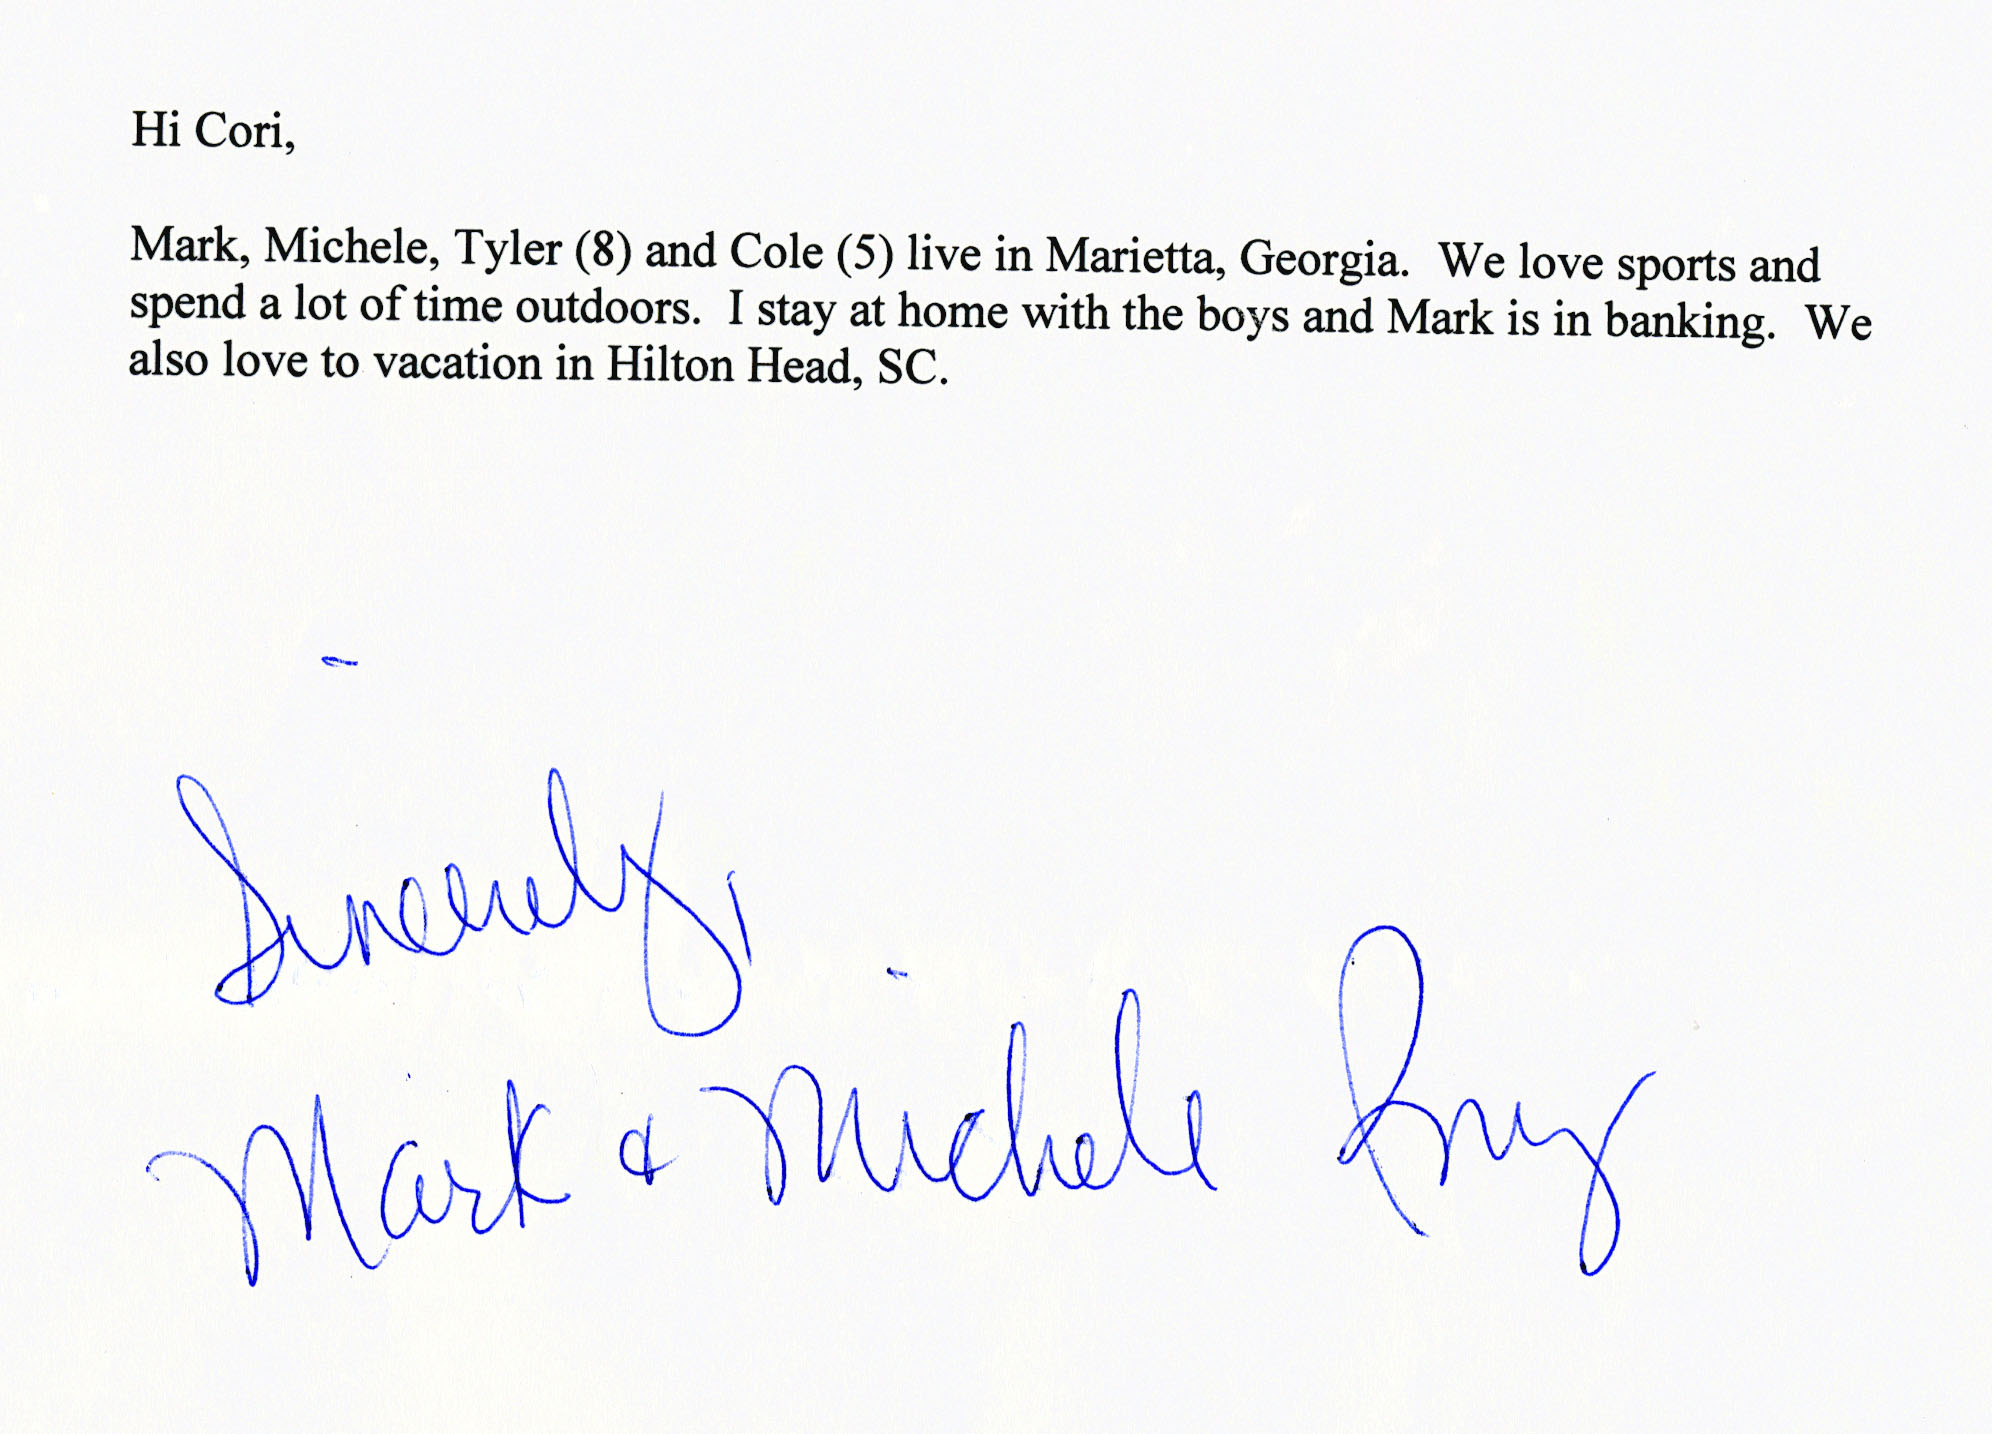 Hi Cori,
Mark, Michele, Tyler (8) and Cole (5) live in Marietta, Georgia.  We love sports and
spend a lot of time outdoors.  I stay at home with the boys and Mark is in banking.  We
also love to vacation in Hilton Head, SC.
Sincerely,
Mark & Michele